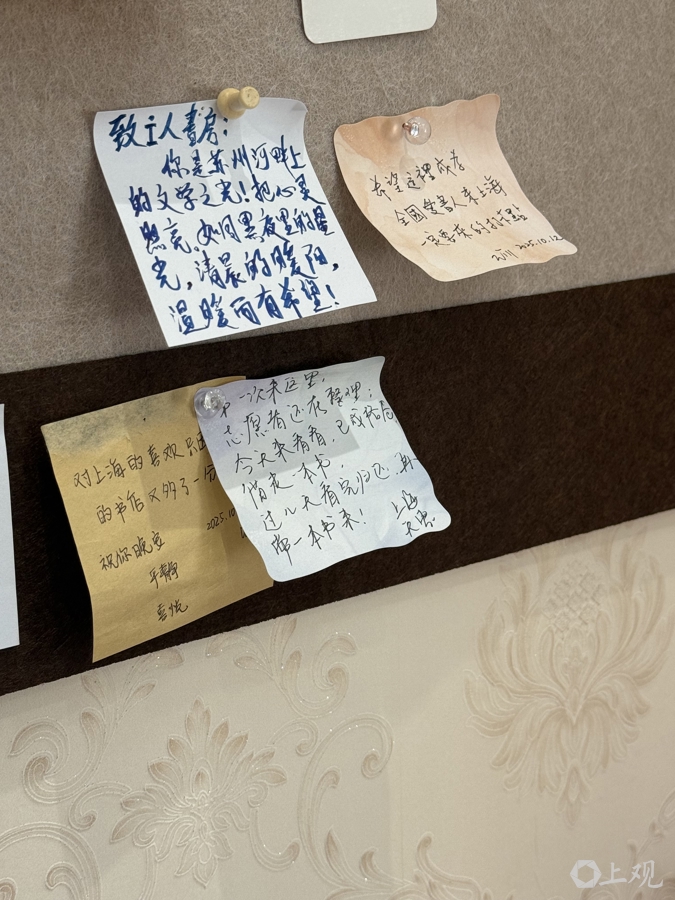 致i人書房:
你是苏州河畔上
的文学之光!把心灵
照亮。如同黑夜里的星
光,清晨的暖阳,
温暖而有希望!
希望这裡成为
全国爱書人来上海
一定要来的打卡点
2025.10.12
一次来这里,
志愿者还在整理;
今天来看看,已成格局,
借走一本书,
过几天看完归还,再
带一本书来!
上海
对上海的喜欢只因
的书店又多了一份
2025.10
祝你晚安
平静
喜悦
上观